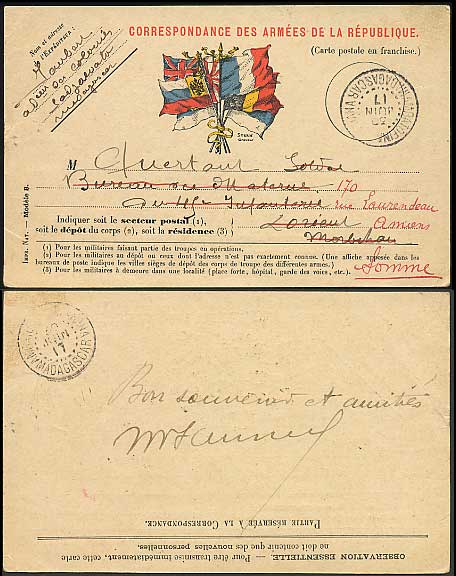 CORRESPONDANCE DES ARMÉES DE LA RÉPUBLIQUE.
(Carte postale en franchise.)
Nom et adresse
de l'Expéditeur :
des colonies
MADAGASCAR
17
JUIN
M Quertant Soldat
Bureau de Materne, 170
45e Infanterie rue Laurendeau
Indiquer soit le secteur postal (1), Lorient Amiens
soit le dépôt du corps (2), soit la résidence (3) Morbihan
Somme
(1) Pour les militaires faisant partie des troupes en opérations.
(2) Pour les militaires au dépôt ou ceux dont l'adresse n'est pas exactement connue. (Une affiche apposée dans les
bureaux de poste indique les villes sièges de dépôt des corps de troupe des différentes armes.)
(3) Pour les militaires à demeure dans une localité (place forte, hôpital, garde des voies, etc.).
Impr. Nat. — Modèle B.
MADAGASCAR
JUIN
17
Bon souvenir et amitiés
PARTIE RÉSERVÉE A LA CORRESPONDANCE.
OBSERVATION ESSENTIELLE. — Pour être transmise immédiatement, cette carte
ne doit contenir que des nouvelles personnelles.